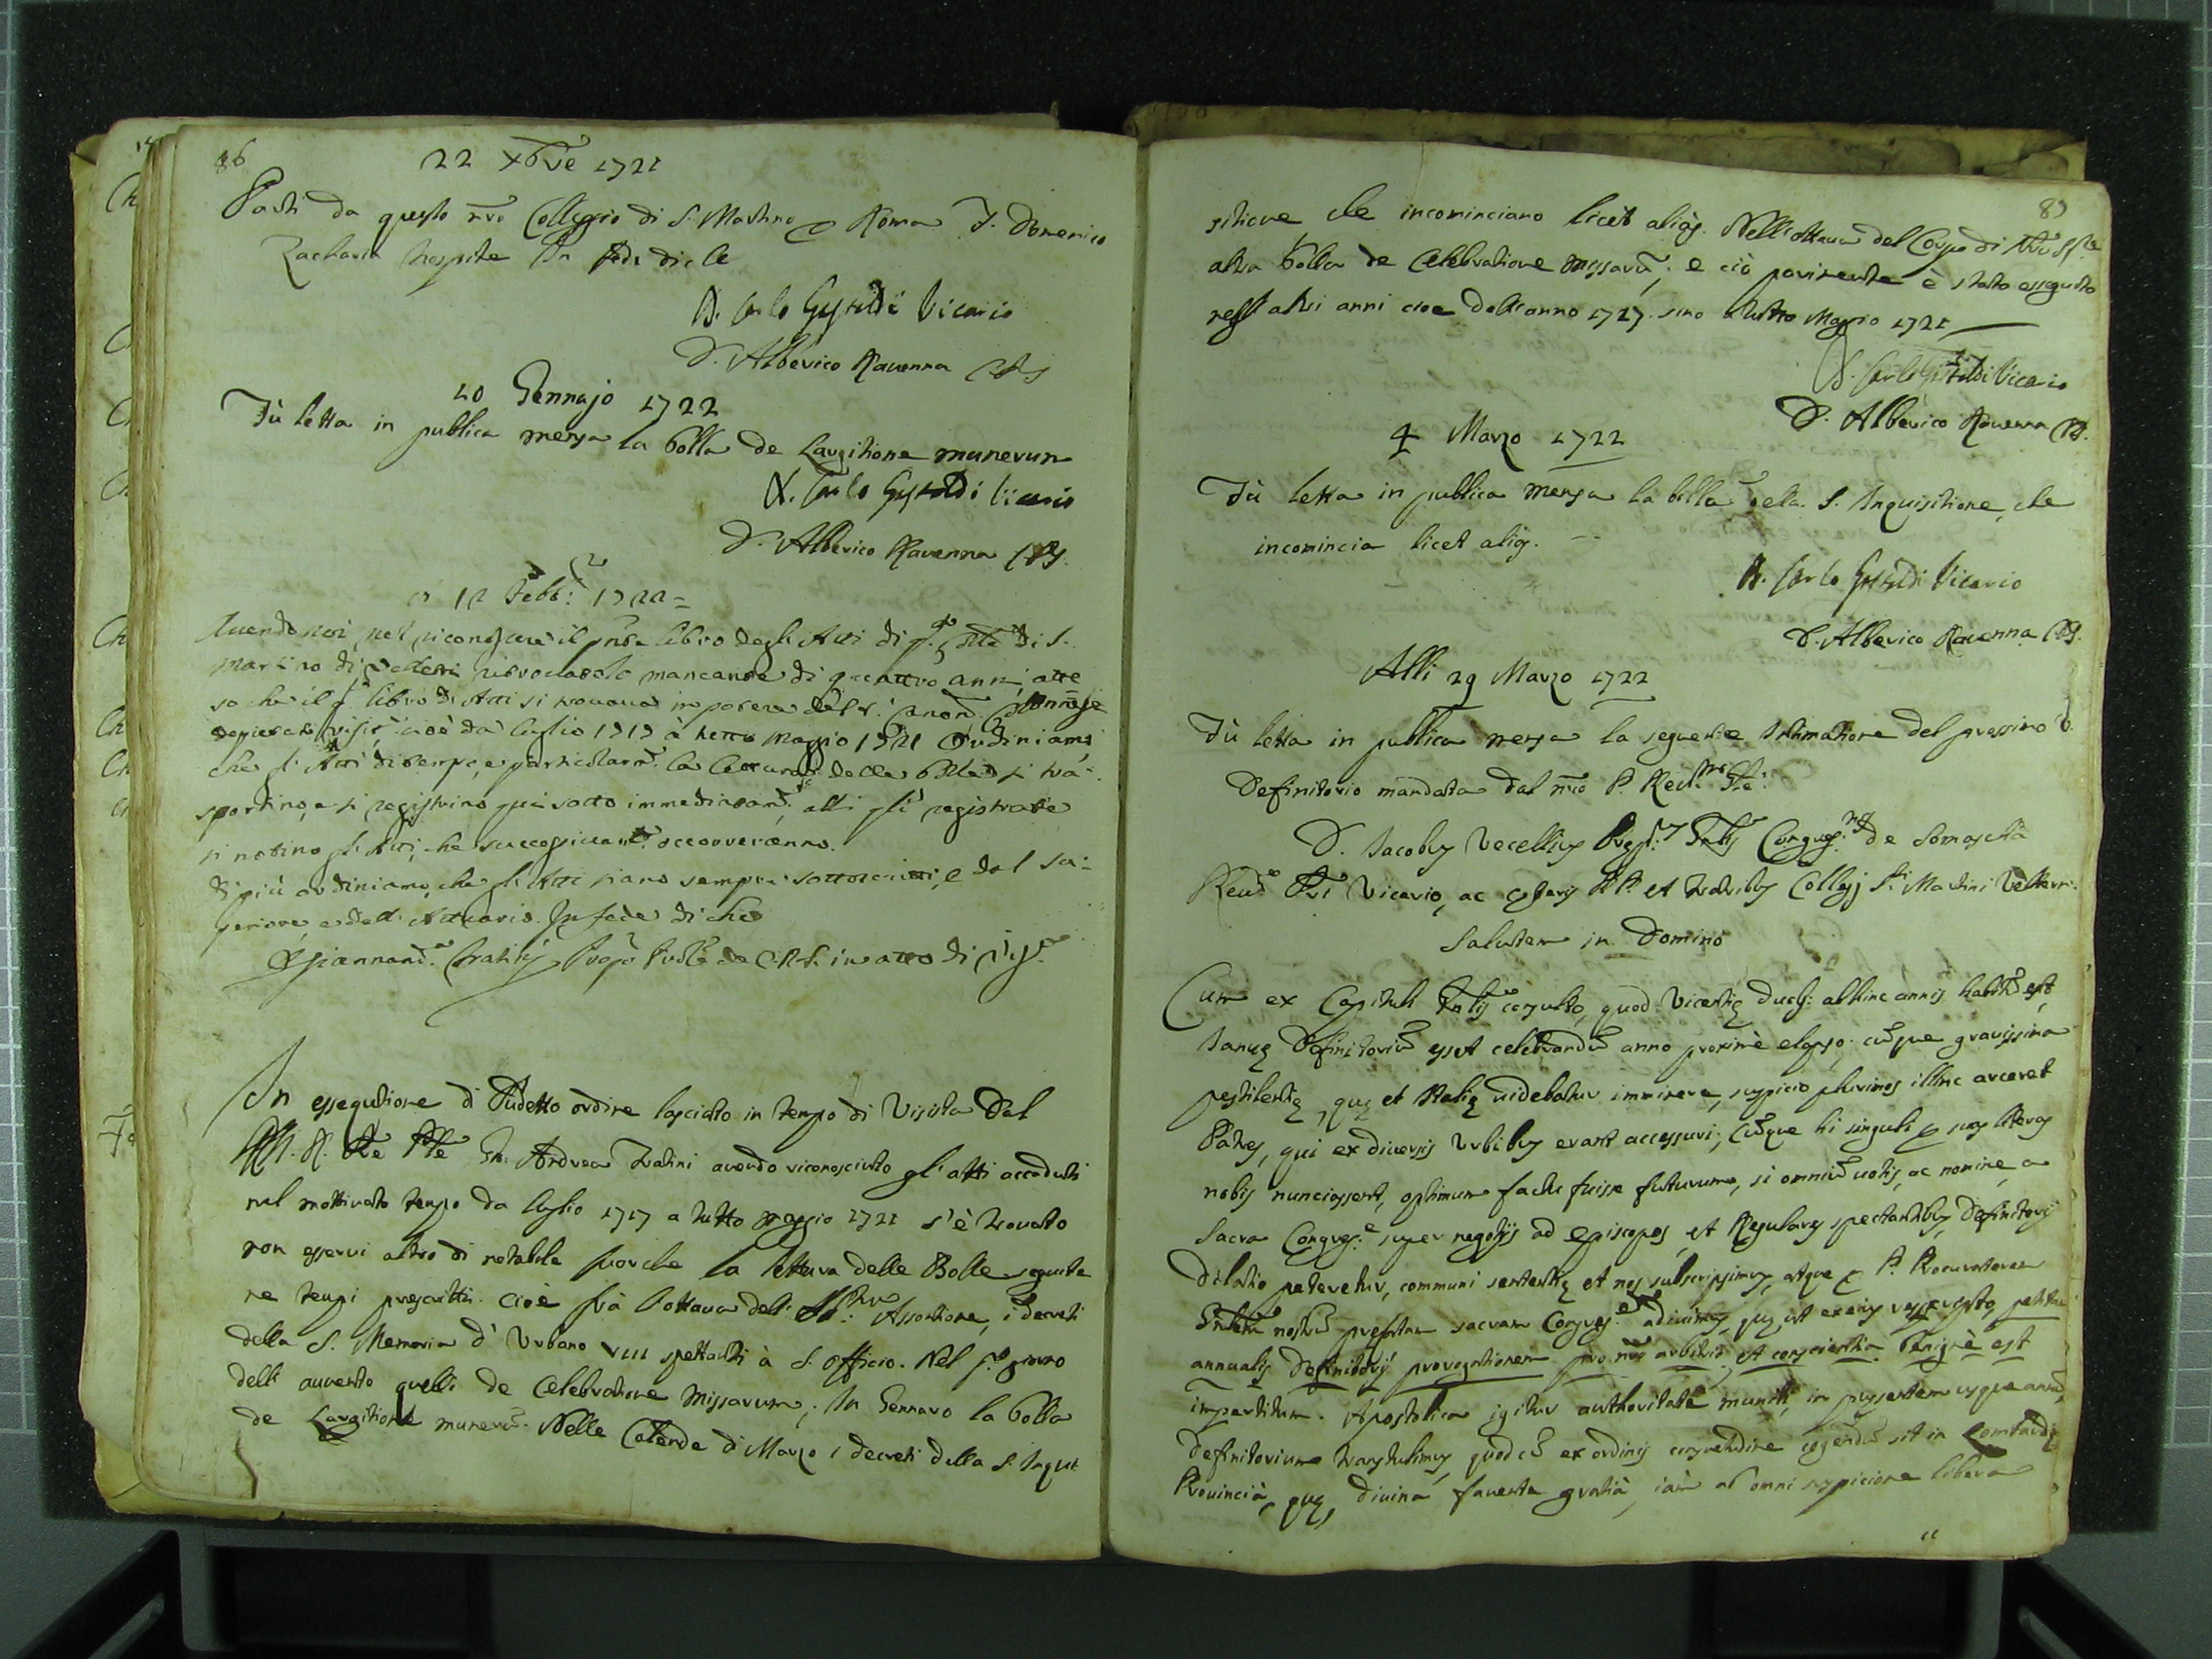 86
22 Xbre 1721
Partì da questo nro Collegio di S. Martino p Roma F. Domenico
Zacharia hospite In fede di che
D. Carlo Gastaldi Vicario
D. Alberico Ravenna CRS
10 Gennajo 1722
Fù letta in publica mensa la bolla de Largitione munerum
D. Carlo Gastaldi Vicario
D. Alberico Ravenna CRS.
12 Febb: 1722
Avendo noi nel riconoscere il pnte libro degli Atti di S.
Martino di Velletri ritrovatolo mancante di quattro anni, atte
so che il libro di Atti si trovava in potere del Canon.
cioè da luglio 1717 à tutto maggio 1721 Ordiniamo
che gl' Atti di tempo, e particolarm. la lettura delle bolle si tra
sportino, e si registrino qui sotto immediatam., alli già registrati
si notino gl' Atti, che successivam. occorreranno.
di più ordiniamo, che gl' Atti siano sempre sottoscritti, e dal Su=
periore, e dall' Attuario. In fede di che
in atto di
In essegutione di Sudetto ordine lasciato in tempo di Visita dal
Gn. Andrea avendo riconosciuto gl' atti accaduti
nel mottivato tempo da luglio 1717 a tutto maggio 1721 s'è trovato
non esservi altro di notabile fuorche la lettura delle Bolle seguita
ne tempi prescritti. cioè frà l'ottava dell' Assontione, i decreti
della S. Memoria d' Urbano VIII spettanti à S. Officio. Nel p.o giorno
dell' avvento quelli de Celebratione Missarum; In Gennaro la bolla
de Largitione munerū. Nelle Calende di Marzo i decreti della S. Inqui
87
sitione che incominciano licet aliàs. Nell' ottava del Corpo di
altra bolla de Celebratione Missarū; e ciò parimente è stato esseguito
negl' altri anni cioe dall' anno 1717 sino a tutto Maggio 1721
D. Carlo Gastaldi Vicario
D. Alberico Ravenna CRS.
4 Marzo 1722
Fù letta in publica mensa la bolla dela S. Inquisitione, che
incomincia licet aliàs.
D. Carlo Gastaldi Vicario
D. Alberico Ravenna CRS.
Alli 29 Marzo 1722
Fù letta in publica mensa la seguente Intimatione del prossimo V.
Definitorio mandata dal nro P.
D. Jacobus Vecellius Congreg. de Somascha
Vicario, ac cęteris PP. et Fratribus Collegij Sti Martini Veliterni
Salutem in Domino
Cum ex Capituli Gnlis consulto, quod Vicentię duob: abhinc annis habitū est,
Ianuę Definitoriū esset celebrandū anno proximè elapso; cūque gravissima
pestilentię, quę et Italię videbatur imminere, suspicio plurimos illinc arceret
Patres, qui ex diversis Urbibus erant accessuri; cūque hi singuli p suas literas
nobis nunciassent, optimum factu fuisse futurum, si omniū votis, ac nomine, a
Sacra Congreg.e super negotijs ad Episcopos, et Regulares spectantibus, Definitorij
dilatio peteretur, communi sententię et nos subscripsimus, atque p P. Procuratorem
Gnlem nostrū prefatam sacram Congreg. adivimus, quę ut ex eius rescripto, petitam
annualis Definitorij prorogationem pro nro arbitrio, et conscientia benignè est
impertitum. Apostolica igitur authoritate muniti, in pręsentem usque annū,
Definitorium transtulimus, quod cū ex ordinis consuetudine cogendū sit in Lombardię
Provincia, quę, divina favente gratia, iàm ab omni suspicione libera